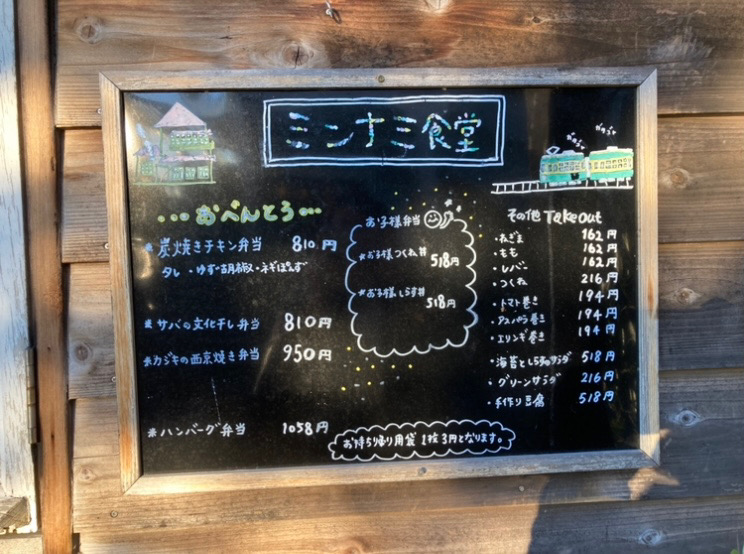 ミンナミ食堂
ガタゴト
ガタゴト
...おべんとう...
*炭焼きチキン弁当 810円
タレ・ゆず胡椒・ネギぽんず
*サバの文化干し弁当 810円
*カジキの西京焼き弁当 950円
*ハンバーグ弁当 1058円
お子様弁当
*お子様つくね丼
518円
*お子様しらす丼
518円
その他 Takeout
・ねぎま 162円
・もも 162円
・レバー 162円
・つくね 216円
・トマト巻き 194円
・アスパラ巻き 194円
・エリンギ巻き 194円
・海苔としらすのサラダ 518円
・グリーンサラダ 216円
・手作り豆腐 518円
お持ち帰り用袋 1枚3円となります。